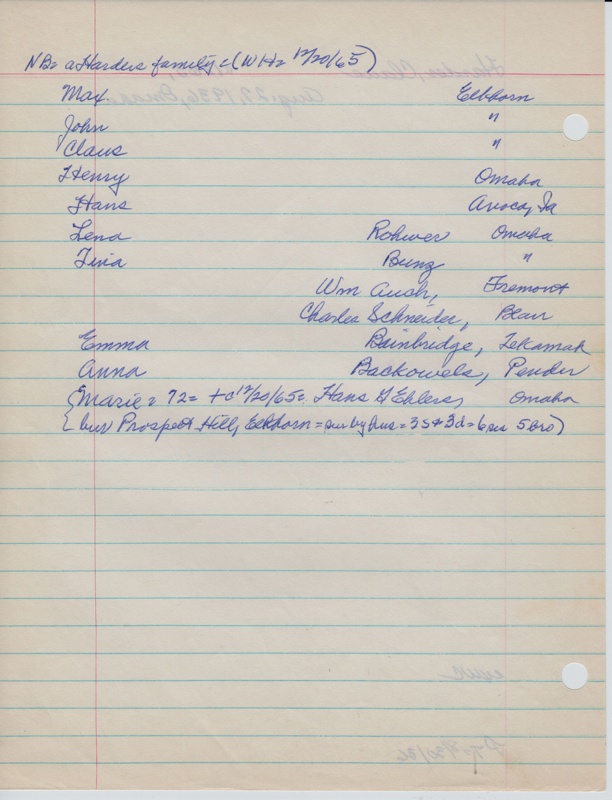 NB= a Harders family = (WH= 12/20/65)
Max. Elkhorn
John "
Claus "
Henry Omaha
Hans Avoca, Ia
Lena Rohwer Omaha
Tina Bunz "
Wm Aush, Fremont
Charles Schneider, Blair
Emma Bainbridge, Tekamah
Anna Backowels, Pender
{Marie = 72= +c 12/20/65= Hans G Ehlers, Omaha
{bur Prospect Hill, Elkhorn = sur by hus = 3s+3d = 6 sis 5 bro)